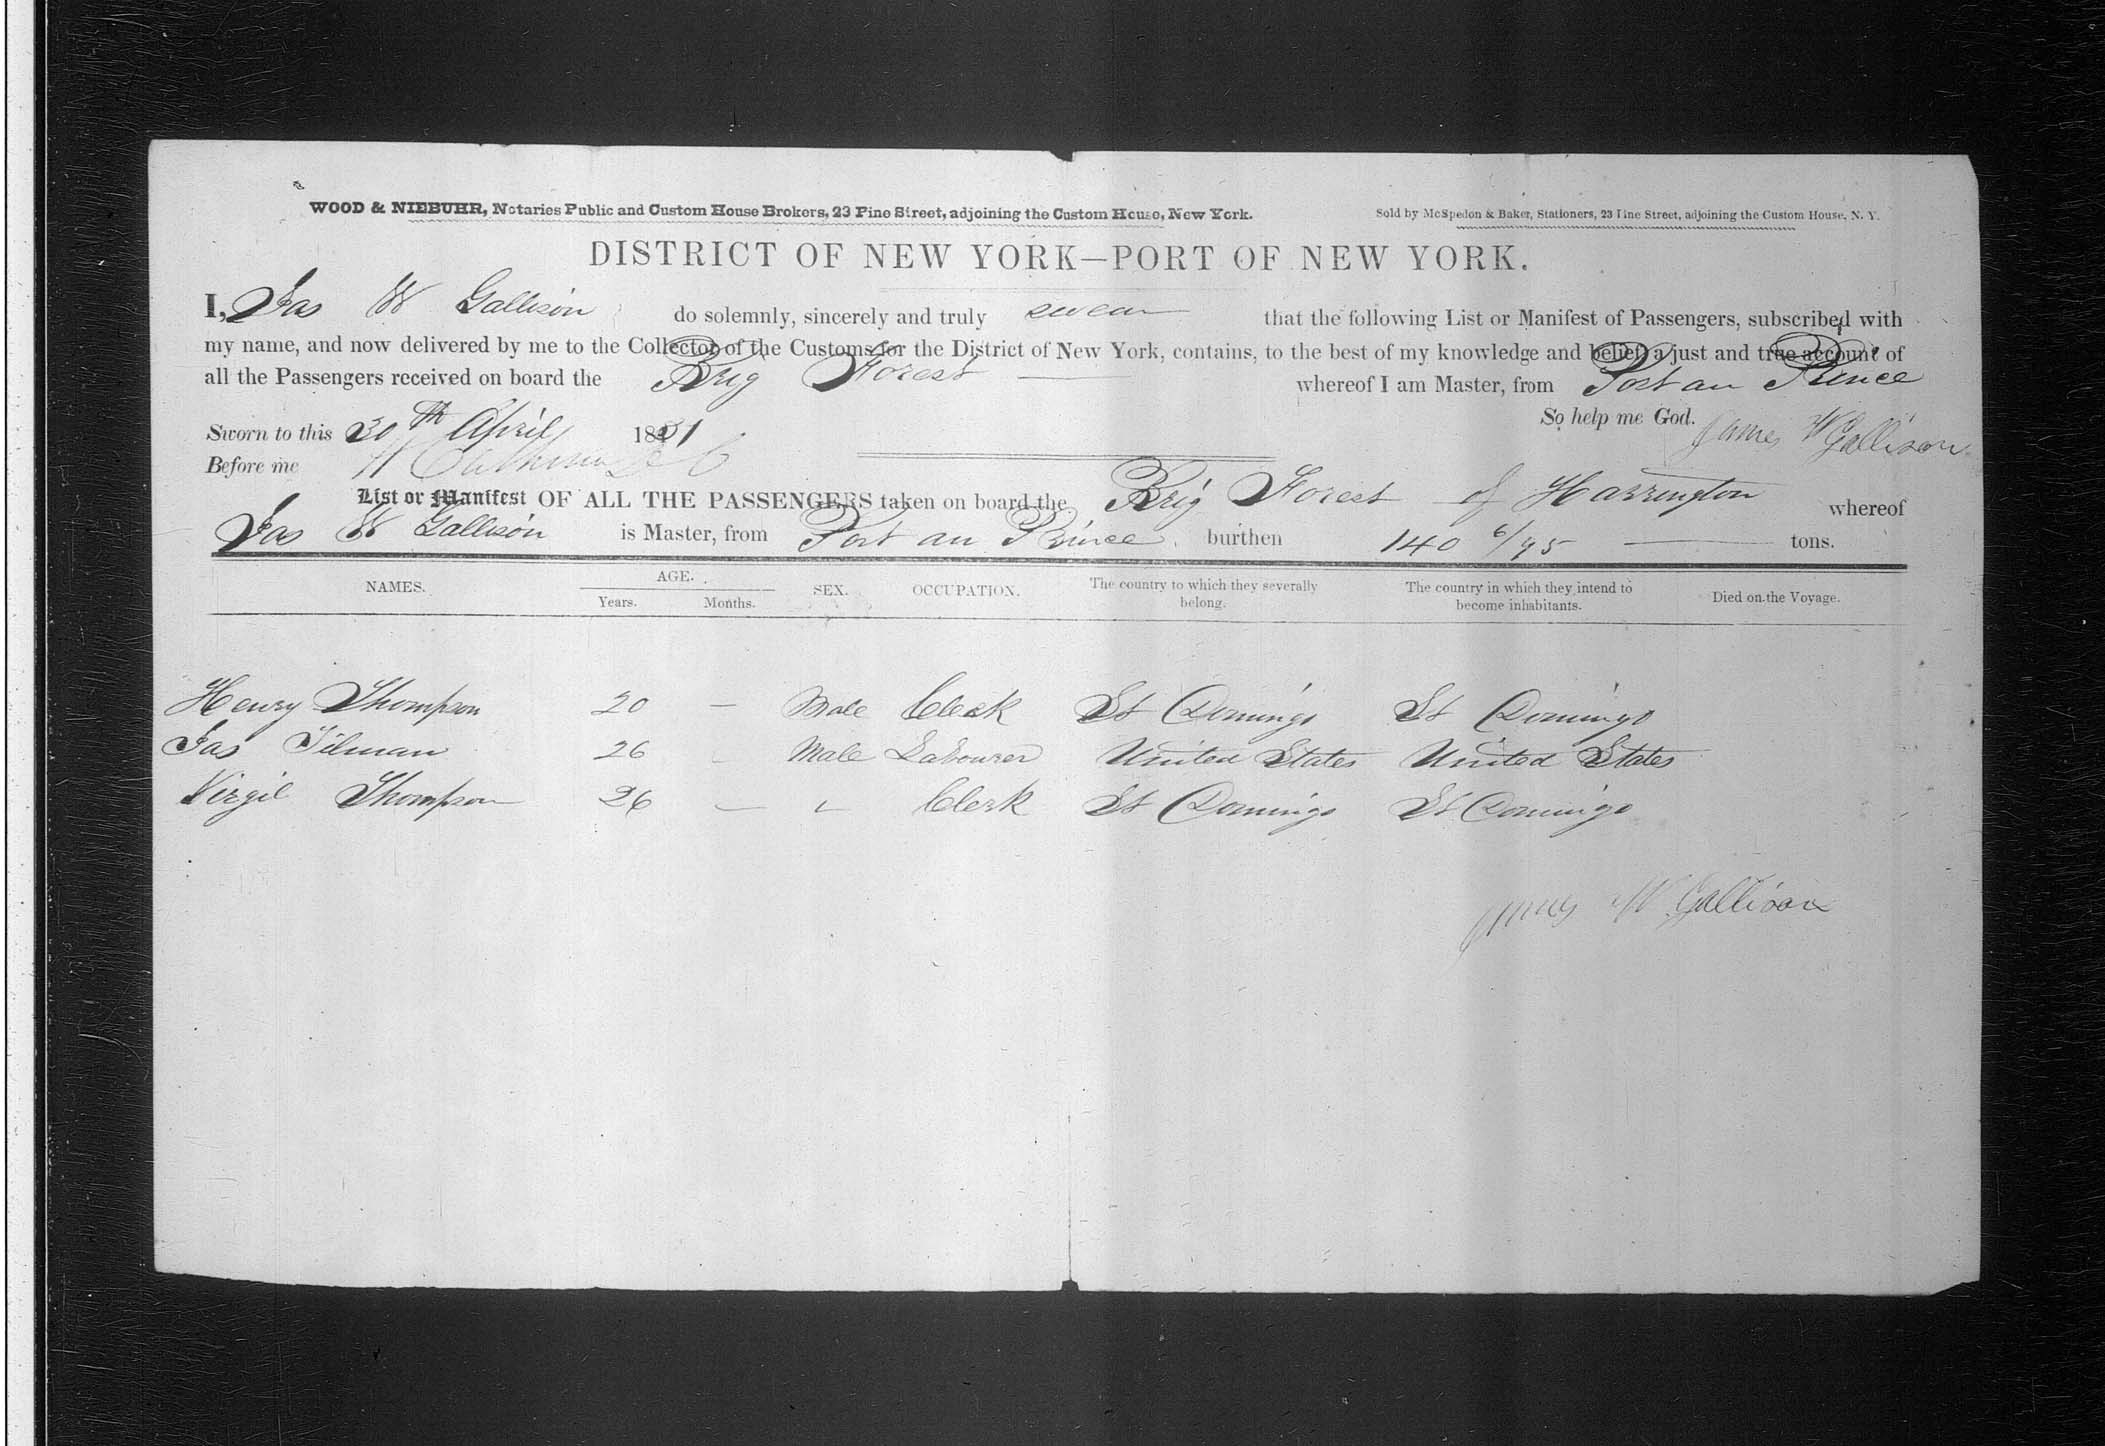 WOOD & NIEBUHR, Notaries Public and Custom House Brokers, 23 Pine Street, adjoining the Custom House, New York.
Sold by McSpedon & Baker, Stationers, 23 Pine Street, adjoining the Custom House, N. Y.
DISTRICT OF NEW YORK—PORT OF NEW YORK.
I, Jas W Gallison do solemnly, sincerely and truly swear that the following List or Manifest of Passengers, subscribed with
my name, and now delivered by me to the Collector of the Customs for the District of New York, contains, to the best of my knowledge and belief, a just and true account of
all the Passengers received on board the Brig Forest — whereof I am Master, from Port au Prince
So help me God. James W Gallison
Sworn to this 30th April 1851
Before me
List or Manifest OF ALL THE PASSENGERS taken on board the Brig Forest of Harrington whereof
Jas W Gallison is Master, from Port au Prince burthen 140 6/95 — tons.
NAMES. AGE. SEX. OCCUPATION. The country to which they severally The country in which they intend to Died on the Voyage.
Years. Months. belong. become inhabitants.
Henry Thompson 20 — Male Clerk St Domingo St Domingo
Jas Tilman 26 Male Labourer United States United States
Virgil Thompson 26 — " Clerk St Domingo St Domingo
James W Gallison